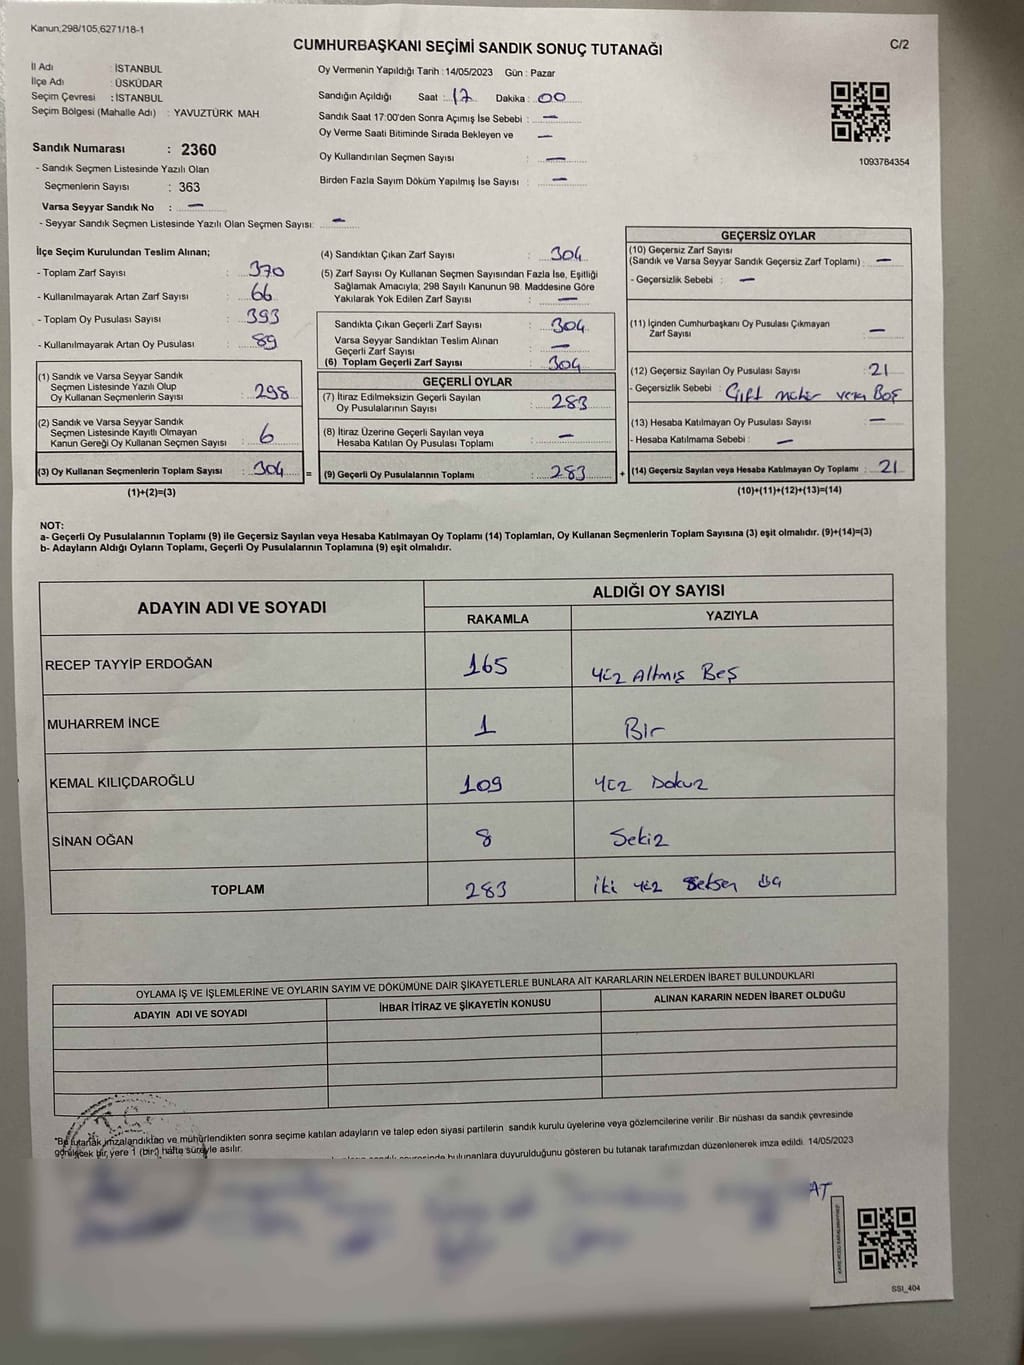 Kanun,298/105,6271/18-1
C/2
CUMHURBAŞKANI SEÇİMİ SANDIK SONUÇ TUTANAĞI
İl Adı : İSTANBUL
İlçe Adı : ÜSKÜDAR
Seçim Çevresi : İSTANBUL
Seçim Bölgesi (Mahalle Adı) : YAVUZTÜRK MAH
Sandık Numarası : 2360
- Sandık Seçmen Listesinde Yazılı Olan
Seçmenlerin Sayısı : 363
Varsa Seyyar Sandık No : —
- Seyyar Sandık Seçmen Listesinde Yazılı Olan Seçmen Sayısı: —
Oy Vermenin Yapıldığı Tarih : 14/05/2023 Gün : Pazar
Sandığın Açıldığı Saat : 17 Dakika : 00
Sandık Saat 17:00'den Sonra Açımış İse Sebebi : —
Oy Verme Saati Bitiminde Sırada Bekleyen ve —
Oy Kullandırılan Seçmen Sayısı : —
Birden Fazla Sayım Döküm Yapılmış İse Sayısı : —
1093784354
İlçe Seçim Kurulundan Teslim Alınan;
- Toplam Zarf Sayısı : 370
- Kullanılmayarak Artan Zarf Sayısı : 66
- Toplam Oy Pusulası Sayısı : 393
- Kullanılmayarak Artan Oy Pusulası : 89
(1) Sandık ve Varsa Seyyar Sandık
Seçmen Listesinde Yazılı Olup
Oy Kullanan Seçmenlerin Sayısı : 298
(2) Sandık ve Varsa Seyyar Sandık
Seçmen Listesinde Kayıtlı Olmayan
Kanun Gereği Oy Kullanan Seçmen Sayısı : 6
(3) Oy Kullanan Seçmenlerin Toplam Sayısı : 304 =
(1)+(2)=(3)
(4) Sandıktan Çıkan Zarf Sayısı : 304
(5) Zarf Sayısı Oy Kullanan Seçmen Sayısından Fazla İse, Eşitliği
Sağlamak Amacıyla; 298 Sayılı Kanunun 98. Maddesine Göre
Yakılarak Yok Edilen Zarf Sayısı : —
Sandıkta Çıkan Geçerli Zarf Sayısı : 304
Varsa Seyyar Sandıktan Teslim Alınan
Geçerli Zarf Sayısı : —
(6) Toplam Geçerli Zarf Sayısı : 304
GEÇERLİ OYLAR
(7) İtiraz Edilmeksizin Geçerli Sayılan
Oy Pusulalarının Sayısı : 283
(8) İtiraz Üzerine Geçerli Sayılan veya
Hesaba Katılan Oy Pusulası Toplamı : —
(9) Geçerli Oy Pusulalarının Toplamı : 283 +
GEÇERSİZ OYLAR
(10) Geçersiz Zarf Sayısı
(Sandık ve Varsa Seyyar Sandık Geçersiz Zarf Toplamı) : —
- Geçersizlik Sebebi : —
(11) İçinden Cumhurbaşkanı Oy Pusulası Çıkmayan
Zarf Sayısı : —
(12) Geçersiz Sayılan Oy Pusulası Sayısı : 21
- Geçersizlik Sebebi : Çift veya Boş
(13) Hesaba Katılmayan Oy Pusulası Sayısı : —
- Hesaba Katılmama Sebebi : —
(14) Geçersiz Sayılan veya Hesaba Katılmayan Oy Toplamı : 21
(10)+(11)+(12)+(13)=(14)
NOT:
a- Geçerli Oy Pusulalarının Toplamı (9) ile Geçersiz Sayılan veya Hesaba Katılmayan Oy Toplamı (14) Toplamları, Oy Kullanan Seçmenlerin Toplam Sayısına (3) eşit olmalıdır. (9)+(14)=(3)
b- Adayların Aldığı Oyların Toplamı, Geçerli Oy Pusulalarının Toplamına (9) eşit olmalıdır.
ADAYIN ADI VE SOYADI
ALDIĞI OY SAYISI
RAKAMLA YAZIYLA
RECEP TAYYİP ERDOĞAN 165 Yüz Altmış Beş
MUHARREM İNCE 1 Bir
KEMAL KILIÇDAROĞLU 109 Yüz Dokuz
SİNAN OĞAN 8 Sekiz
TOPLAM 283 iki yüz seksen üç
OYLAMA İŞ VE İŞLEMLERİNE VE OYLARIN SAYIM VE DÖKÜMÜNE DAİR ŞİKAYETLERLE BUNLARA AİT KARARLARIN NELERDEN İBARET BULUNDUKLARI
ADAYIN ADI VE SOYADI
İHBAR İTİRAZ VE ŞİKAYETİN KONUSU
ALINAN KARARIN NEDEN İBARET OLDUĞU
"Bu tutanak imzalandıktan ve mühürlendikten sonra seçime katılan adayların ve talep eden siyasi partilerin sandık kurulu üyelerine veya gözlemcilerine verilir .Bir nüshası da sandık çevresinde
görülecek bir yere 1 (bir) hafta süreyle asılır.
bulunanlara duyurulduğunu gösteren bu tutanak tarafımızdan düzenlenerek imza edildi. 14/05/2023
AT
SSI_404